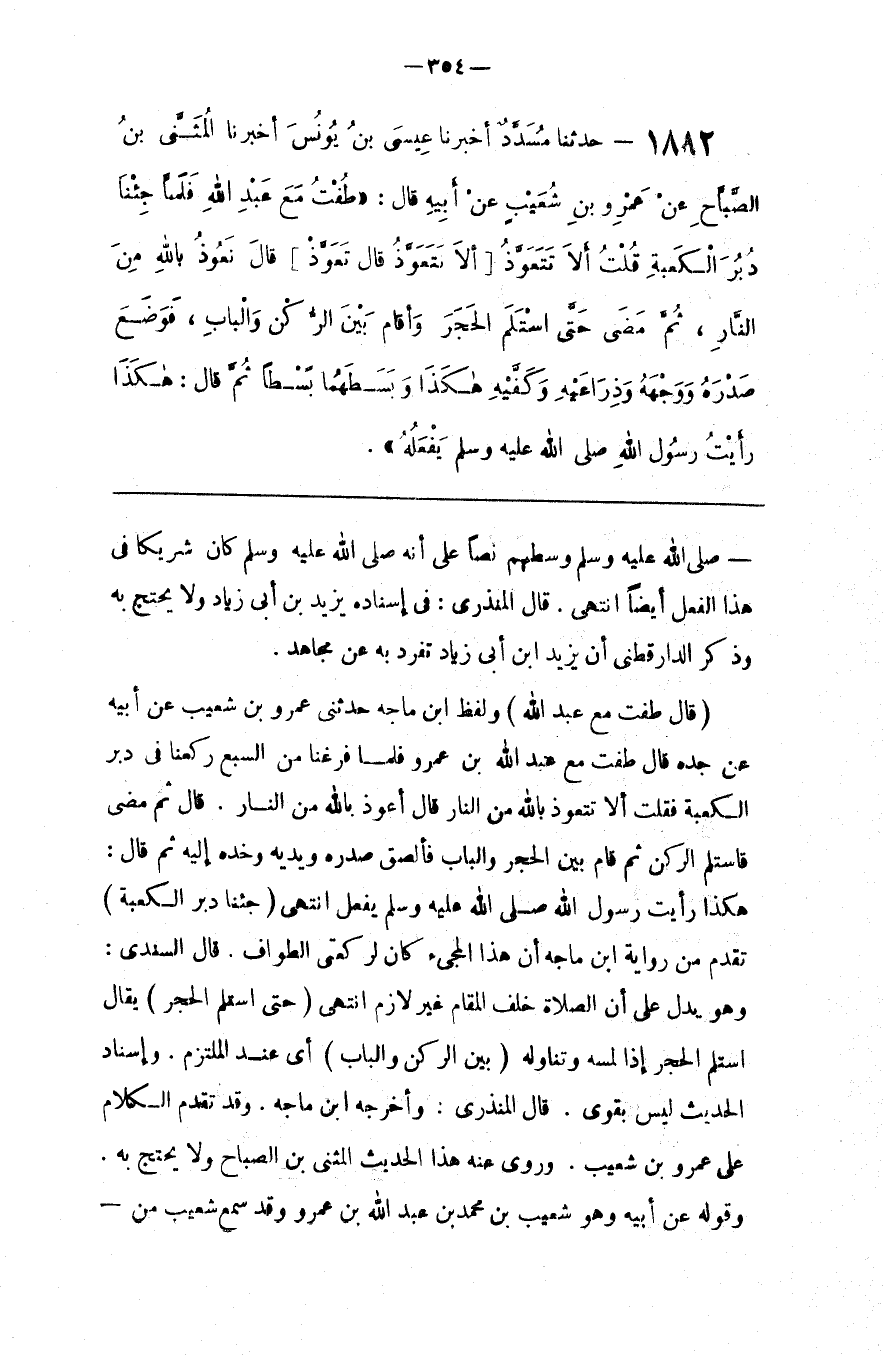 —٣٥٤—
١٨٨٢ — حدثنا مُسَدَّدٌ أخبرنا عِيسَى بنُ يُونُسَ أخبرنا الْمُثَنَّى بنُ
الصَّبَّاحِ عنْ عَمْرِو بنِ شُعَيْبٍ عنْ أَبِيهِ قال : «طُفْتُ مَعَ عَبْدِ اللهِ فَلَمَّا جِئْنَا
دُبُرَ الْكَعبةِ قُلْتُ أَلاَ تَتَعَوَّذُ [ ألاَ نَتَعَوَّذُ قال تَعَوَّذْ ] قالَ نَعُوذُ باللهِ مِنَ
النَّارِ ، ثُمَّ مَضَى حَتَّى اسْتَلَمَ الْحَجَرَ وَأقام بَيْنَ الرُّكْنِ وَالْبابِ ، فَوَضَعَ
صَدْرَهُ وَوَجْهَهُ وَذِرَاعَيْهِ وَكَفَّيْهِ هٰكَذَا وَبَسَطَهُمَا بَسْطاً ثُمَّ قال : هٰكَذَا
رأَيْتُ رسُول اللهِ صلى الله عليه وسلم يَفْعَلُهُ» .
— صلى الله عليه وسلم وسطهم نصاً على أنه صلى الله عليه وسلم كان شريكا فى
هذا الفعل أيضاً انتهى . قال المنذرى : فى إسناده يزيد بن أبى زياد ولا يحتج به
وذكر الدارقطنى أن يزيد ابن أبى زياد تفرد به عن مجاهد .
( قال طفت مع عبد الله ) ولفظ ابن ماجه حدثنى عمرو بن شعيب عن أبيه
عن جده قال طفت مع عبد الله بن عمرو فلما فرغنا من السبع ركعنا فى دبر
الكعبة فقلت ألا تتعوذ بالله من النار قال أعوذ بالله من النار . قال ثم مضى
فاستلم الركن ثم قام بين الحجر والباب فألصق صدره ويديه وخده إليه ثم قال :
هكذا رأيت رسول الله صلى الله عليه وسلم يفعل انتهى ( جئنا دبر الكعبة )
تقدم من رواية ابن ماجه أن هذا المجىء كان لركعتى الطواف . قال السندى :
وهو يدل على أن الصلاة خلف المقام غير لازم انتهى ( حتى استلم الحجر ) يقال
استلم الحجر إذا لمسه وتناوله ( بين الركن والباب ) أى عند الملتزم . وإسناد
الحديث ليس بقوى . قال المنذرى : وأخرجه ابن ماجه . وقد تقدم الكلام
على عمرو بن شعيب . وروى عنه هذا الحديث المثنى بن الصباح ولا يحتج به .
وقوله عن أبيه وهو شعيب بن محمد بن عبد الله بن عمرو وقد سمع شعيب من —